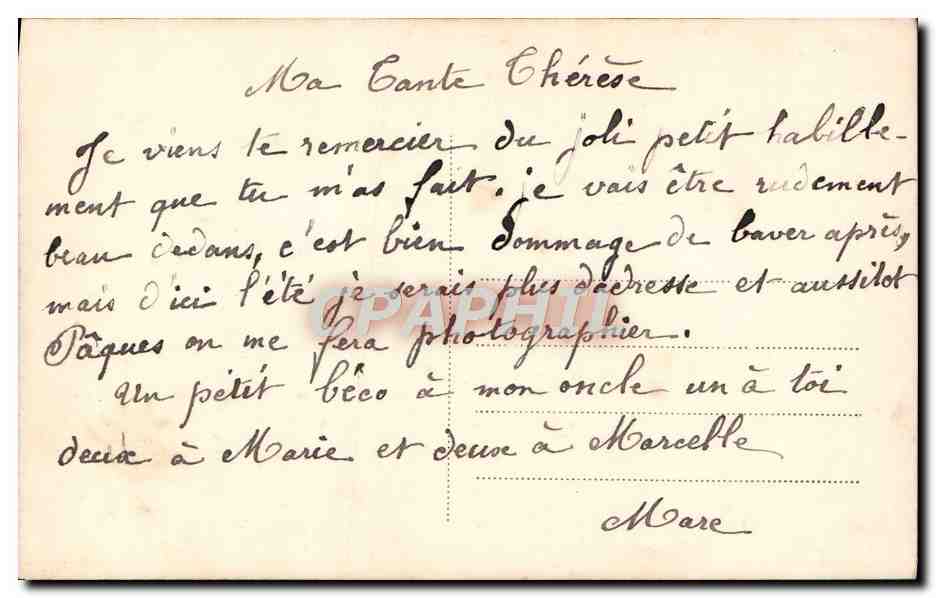 Ma Tante Thérèse
Je viens te remercier du joli petit habille-
ment que tu m'as fait. je vais être rudement
beau dedans, c'est bien dommage de baver après,
mais d'ici l'été je serais plus d'adresse et aussitot
Pâques on me fera photographier.
Un petit béco à mon oncle un à toi
deux à Marie et deux à Marcelle
Marc
CPAPHIL